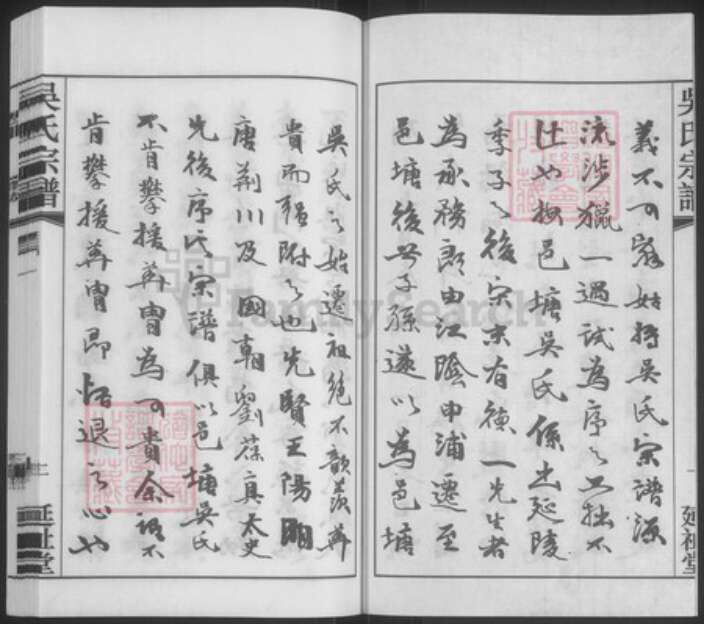 義不可辭姑將吳氏宗譜源
流涉獵一過試為序之工拙不
計也按邑塘吳氏係出延陵
季子之後宋末有德一先生者
為承務郎由江陰申浦遷至
邑塘後世子孫遂以為邑塘
吳氏之始遷祖絕不歆羨華
貴而強附之也先賢王陽明
唐荊川及國朝劉葆真太史
先後序氏宗譜俱以邑塘吳氏
不肯攀援華胄為可貴余謂不
肯攀援華胄即恬退之心也
吳氏宗譜
延祉堂
FamilySearch